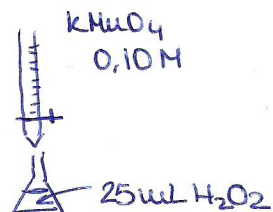 KMnO4
0,10M
25mL H2O2